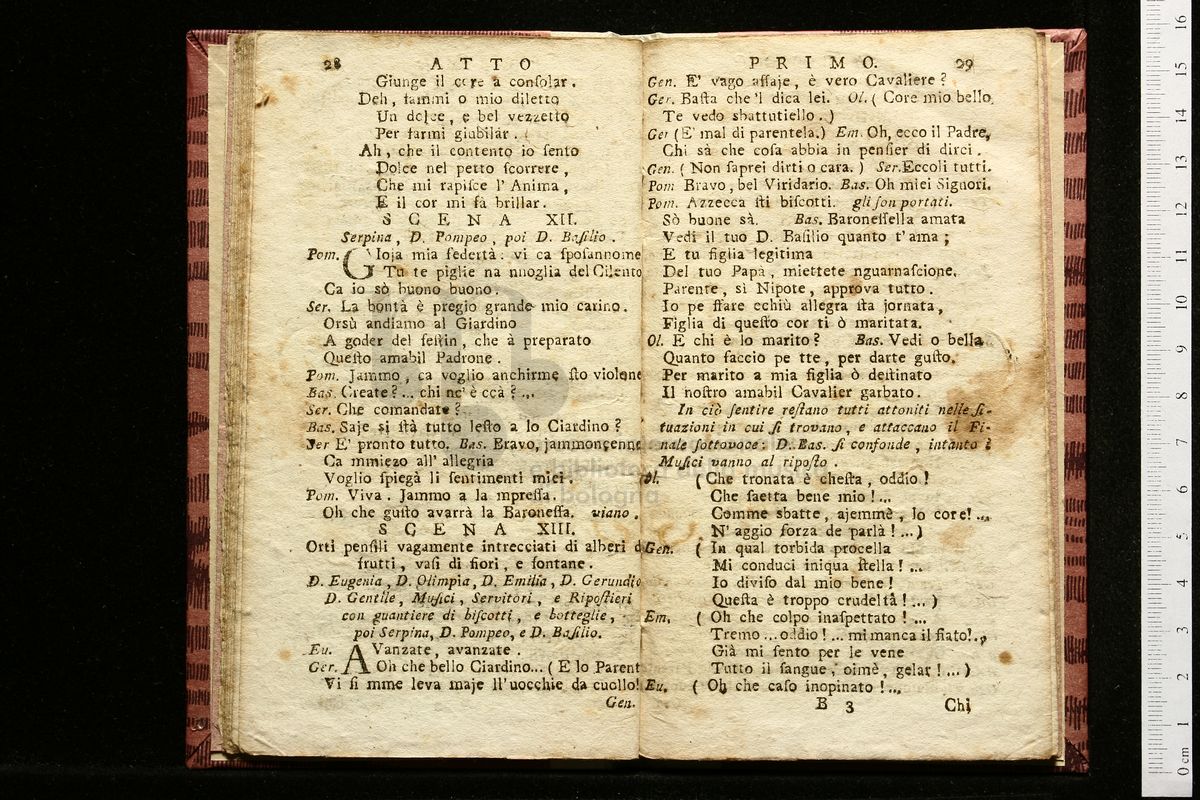 28 ATTO
Giunge il core a conſolar.
Deh, fammi o mio diletto
Un dolce, e bel vezzetto
Per farmi giubilar.
Ah, che il contento io ſento
Dolce nel petto ſcorrere,
Che mi rapiſce l' Anima,
E il cor mi fà brillar.
SCENA XII.
Serpina, D. Pompeo, poi D. Baſilio.
Pom. Gioja mia federtà: vi ca ſpoſannome
Tu te piglie na mmoglia del Cilento
Ca io sò buono buono.
Ser. La bontà è pregio grande mio carino.
Orsù andiamo al Giardino
A goder del feſtin, che à preparato
Queſto amabil Padrone.
Pom. Jammo, ca voglio anchirme ſto violone
Bas. Create?... chi nc' è ccà?...
Ser. Che comandate?
Bas. Saje si ſtà tutto leſto a lo Ciardino?
Ser E' pronto tutto. Bas. Bravo, jammoncenne
Ca mmiezo all' allegria
Voglio ſpiegà li ſentimenti miei.
Pom. Viva. Jammo a la mpreſſa.
Oh che guſto avarrà la Baroneſſa. viano.
SCENA XIII.
Orti penſili vagamente intrecciati di alberi d
frutti, vaſi di fiori, e fontane.
D. Eugenia, D. Olimpia, D. Emilia, D. Gerundio
D. Gentile, Muſici, Servitori, e Ripoſtieri
con guantiere di biſcotti, e botteglie,
poi Serpina, D. Pompeo, e D. Baſilio.
Eu. AVanzate, avanzate.
Ger. Oh che bello Ciardino... (E lo Parent
Vi ſi mme leva maje ll' uocchie da cuollo!
Gen.
PRIMO. 29
Gen. E' vago aſſaje, è vero Cavaliere?
Ger. Baſta che 'l dica lei. Ol. (Core mio bello
Te vedo sbattutiello.)
Ger (E' mal di parentela.) Em. Oh, ecco il Padre,
Chi sà che coſa abbia in penſier di dirci.
Gen. (Non ſaprei dirti o cara.) Ser. Eccoli tutti.
Pom Bravo, bel Viridario. Bas. Oh miei Signori.
Pom. Azzecca ſti biſcotti. gli ſon portati.
Sò buone sà. Bas. Baroneſſella amata
Vedi il tuo D. Baſilio quanto t'ama;
E tu figlia legitima
Del tuo Papà, miettete nguarnaſcione.
Parente, sì Nipote, approva tutto.
Io pe ſtare cchiù allegra ſta jornata,
Figlia di queſto cor ti ò maritata.
Ol. E chi è lo marito? Bas. Vedi o bella
Quanto faccio pe tte, per darte guſto.
Per marito a mia figlia ò deſtinato
Il noſtro amabil Cavalier garbato.
In ciò ſentire reſtano tutti attoniti nelle ſi-
tuazioni in cui ſi trovano, e attaccano il Fi-
nale ſottovoce: D. Bas. ſi confonde, intanto i
Muſici vanno al ripoſto.
Ol. (Che tronata è cheſta, oddio!
Che ſaetta bene mio!...
Comme sbatte, ajemmè, lo core!...
N' aggio forza de parlà!...)
Gen. (In qual torbida procella
Mi conduci iniqua ſtella!...
Io diviſo dal mio bene!
Queſta è troppo crudeltà!...)
Em. (Oh che colpo inaſpettato!...
Tremo... oddio!... mi manca il fiato!..
Già mi ſento per le vene
Tutto il ſangue, oimè, gelar!...)
Eu. (Oh che caſo inopinato!...
B 3 Chi